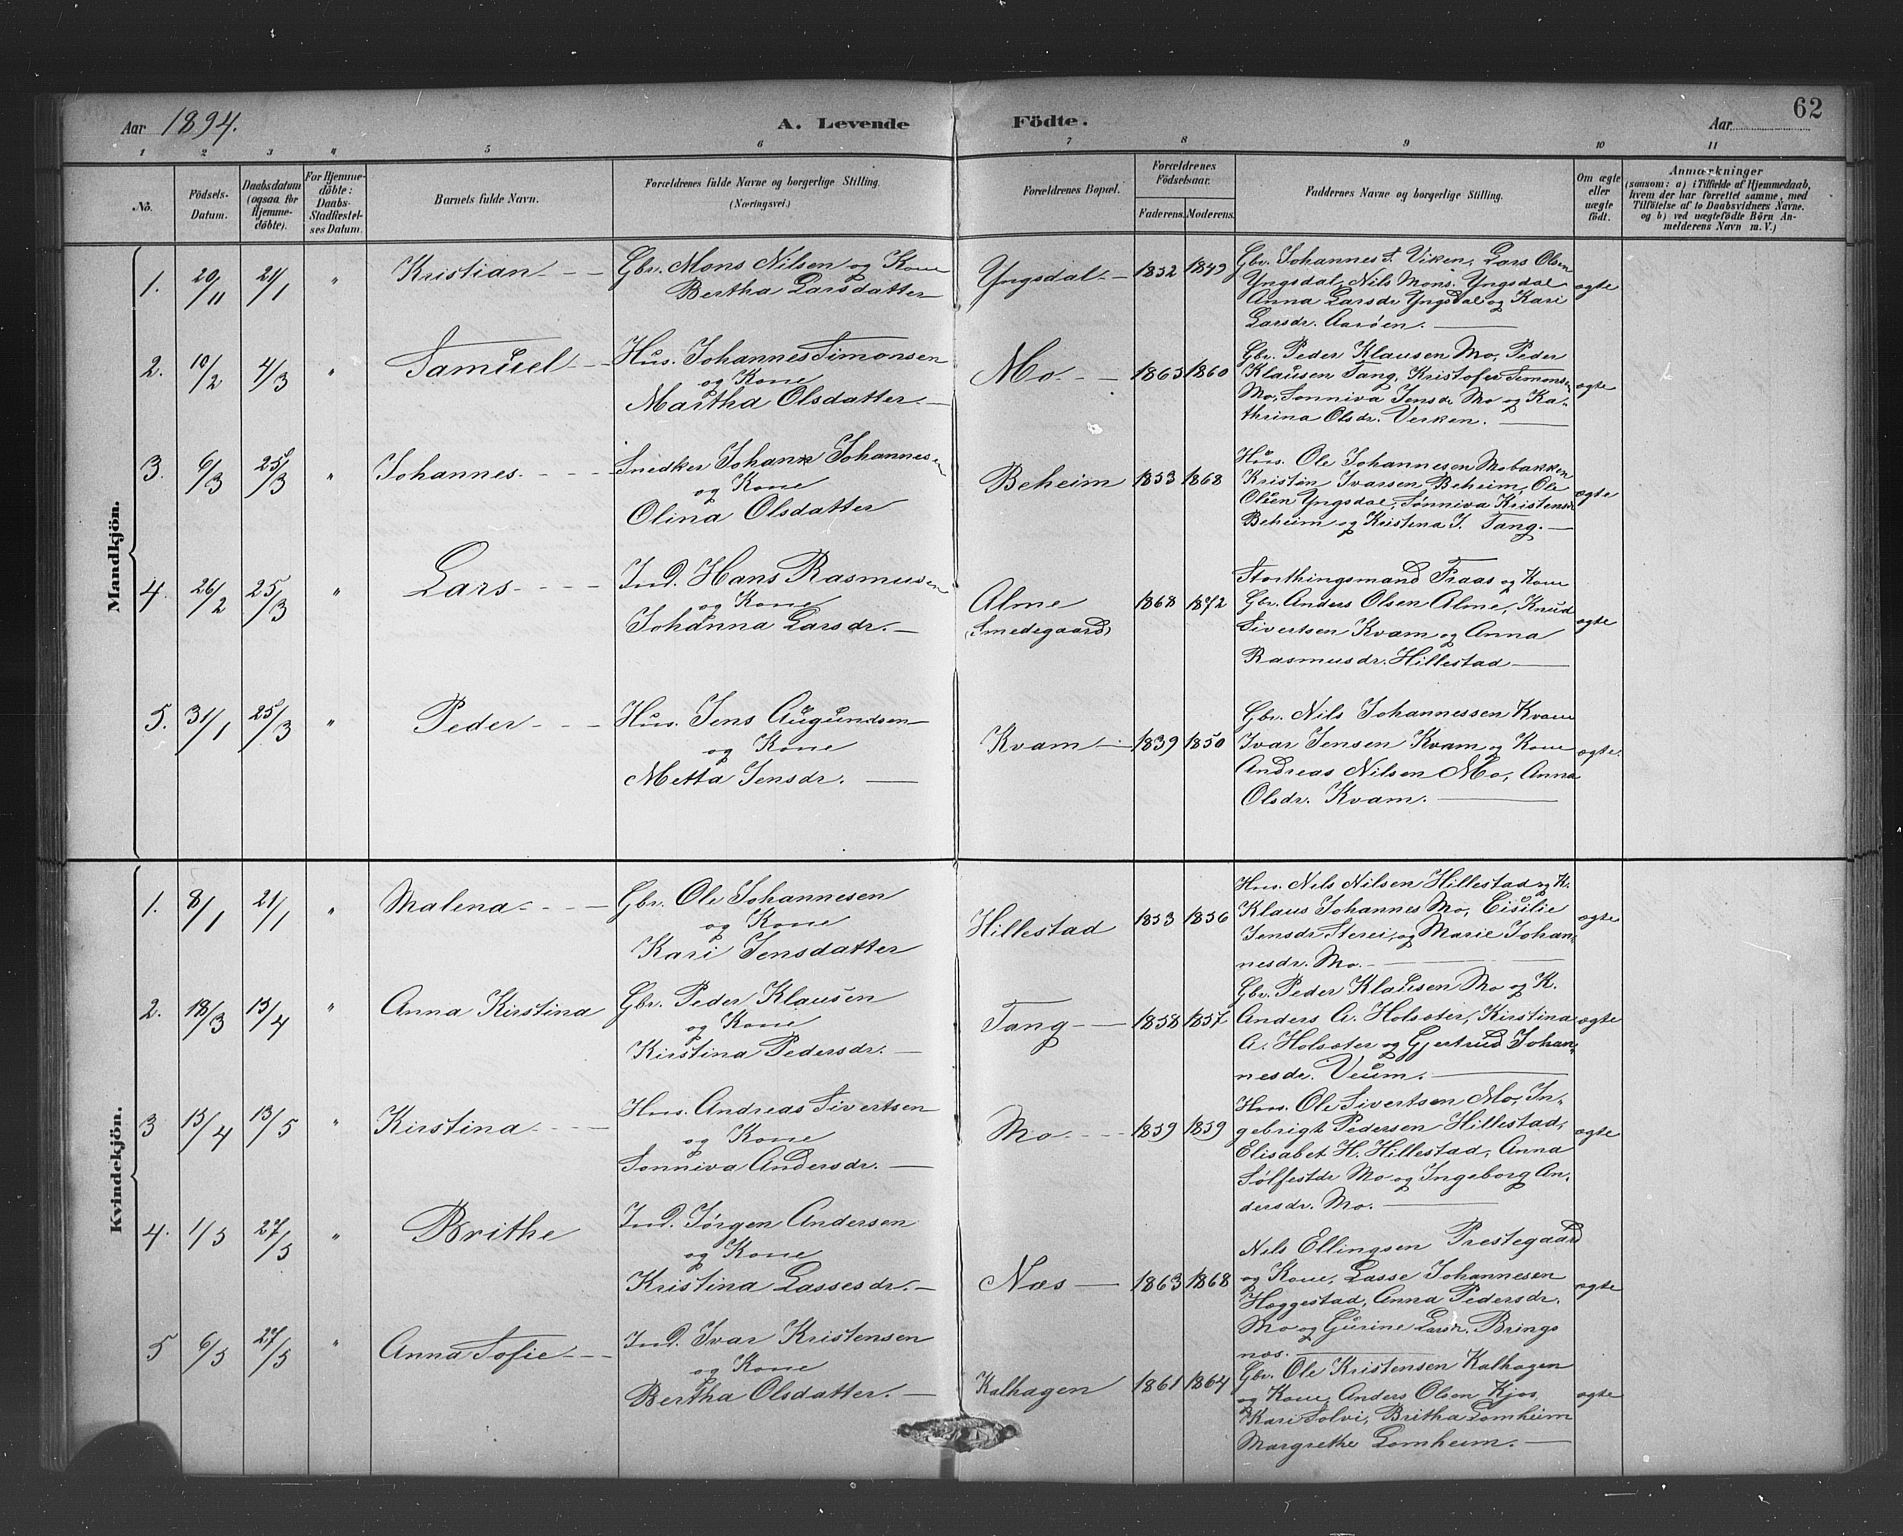 62
Aar 1894.
A. Levende Födte.
Aar
1 2 3 4 5 6 7 8 9 10 11
No.
Födsels-Datum.
Daabsdatum (ogsaa for Hjemme-döbte).
For Hjemme-döbte: Daabs-Stadfæstel-ses Datum.
Barnets fulde Navn.
Forældrenes fulde Navne og borgerlige Stilling. (Næringsvei.)
Forældrenes Bopæl.
Forældrenes Födselsaar.
Faderens. Moderens.
Faddernes Navne og borgerlige Stilling.
Om ægte eller uægte födt.
Anmærkninger
(saasom: a) i Tilfælde af Hjemmedaab,
hvem der har forrettet samme, med
Tilföielse af to Daabsvidners Navne.
og b) ved uægtefödte Börn An-
melderens Navn m. V.)
Mandkjön.
1. 20/11 21/1 " Kristian
Gbr. Mons Nilsen og Kone
Bertha Larsdatter
Yngsdal 1852 1849
Gbr. Johannes t. Viken, Lars Olsen
Yngsdal, Nils Mons. Yngsdal
Anna Larsdr Yngsdal og Kari
Larsdr. Aarøen.
ægte
2. 10/2 4/3 " Samuel
Hus. Johannes Simonsen
og Kone
Martha Olsdatter
Mo. 1865 1860
Gbr. Peder Klausen Mo, Peder
Klausen Tang, Kristofer Simonsen
Mo, Sonniva Jensdr Mo og Ka-
thrina Olsdr. Verken.
ægte
3. 6/3 25/3 " Johannes
Snedker Johan Johannesen
og Kone
Olina Olsdatter
Beheim 1853 1868
Hus. Ole Johannesen Mobakken
Kristen Ivarsen Beheim, Ole
Olsen Yngsdal, Sønniva Kristensdr
Beheim og Kristina J. Tang.
ægte
4. 26/2 25/3 " Lars
Ind. Hans Rasmusen
og Kone
Johanna Larsdr.
Alme
(Smedegaard) 1868 1872
Storthingsmand Fraas og Kone
Gbr. Anders Olsen Alme, Knud
Sivertsen Kvam og Anna
Rasmusdr. Hillestad
ægte
5. 31/1 25/3 " Peder
Hus. Jens Augundsen
og Kone
Metta Jensdr.
Kvam 1839 1850
Gbr. Nils Johannessen Kvam
Ivar Jensen Kvam og Kone
Andreas Nilsen Mo, Anna
Olsdr. Kvam.
ægte.
Kvindekjön.
1. 8/1 21/1 " Malena
Gbr. Ole Johannesen
og Kone
Kari Jensdatter
Hillestad 1853 1856
Hus. Nils Nilsen Hillestad og K.
Klaus Johannes Mo, Cisilie
Jensdr Sterei, og Marie Johan-
nesdr. Mo.
ægte
2. 18/3 15/4 " Anna Kirstina
Gbr. Peder Klausen
og Kone
Kirstina Pedersdr.
Tang 1858 1857
Gbr. Peder Klausen Mo og K.
Anders A. Holsæter, Kirstina
A. Holsæter og Gjertrud Johan-
nesdr. Veum.
ægte
3 15/4 13/5 " Kirstina
Hus. Andreas Sivertsen
og Kone
Sonniva Andersdr.
Mo. 1859 1859
Hus. Ole Sivertsen Mo, In-
gebrigt Pedersen Hillestad,
Elisabet H. Hillestad, Anna
Sølfestdr Mo og Ingeborg An-
dersdr. Mo.
ægte
4. 1/5 27/5 " Brithe
Ind. Jørgen Andersen
og Kone
Kristina Lassesdr.
Næs 1863 1868
Nils Ellingsen Prestegaard
og Kone, Lasse Johannesen
Høggestad, Anna Pedersdr.
Mo og Gurine Larsdr. Brings
næs.
ægte
5 6/5 27/5 " Anna Sofie
Ind. Ivar Kristensen
og Kone
Bertha Olsdatter.
Kalhagen 1861 1864
Gbr. Ole Kristensen Kalhagen
og Kone, Anders Olsen Kjos
Kari Solvi, Britha Lomheim
Margrethe Lomheim.
ægte